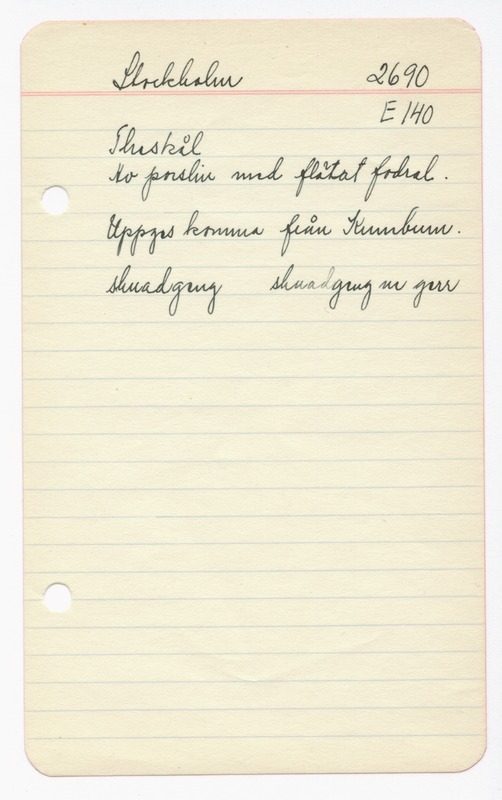 Stockholm 2690
E 140
Theskål
Av porslin med flätat fodral.
Uppges komma från Kumbum.